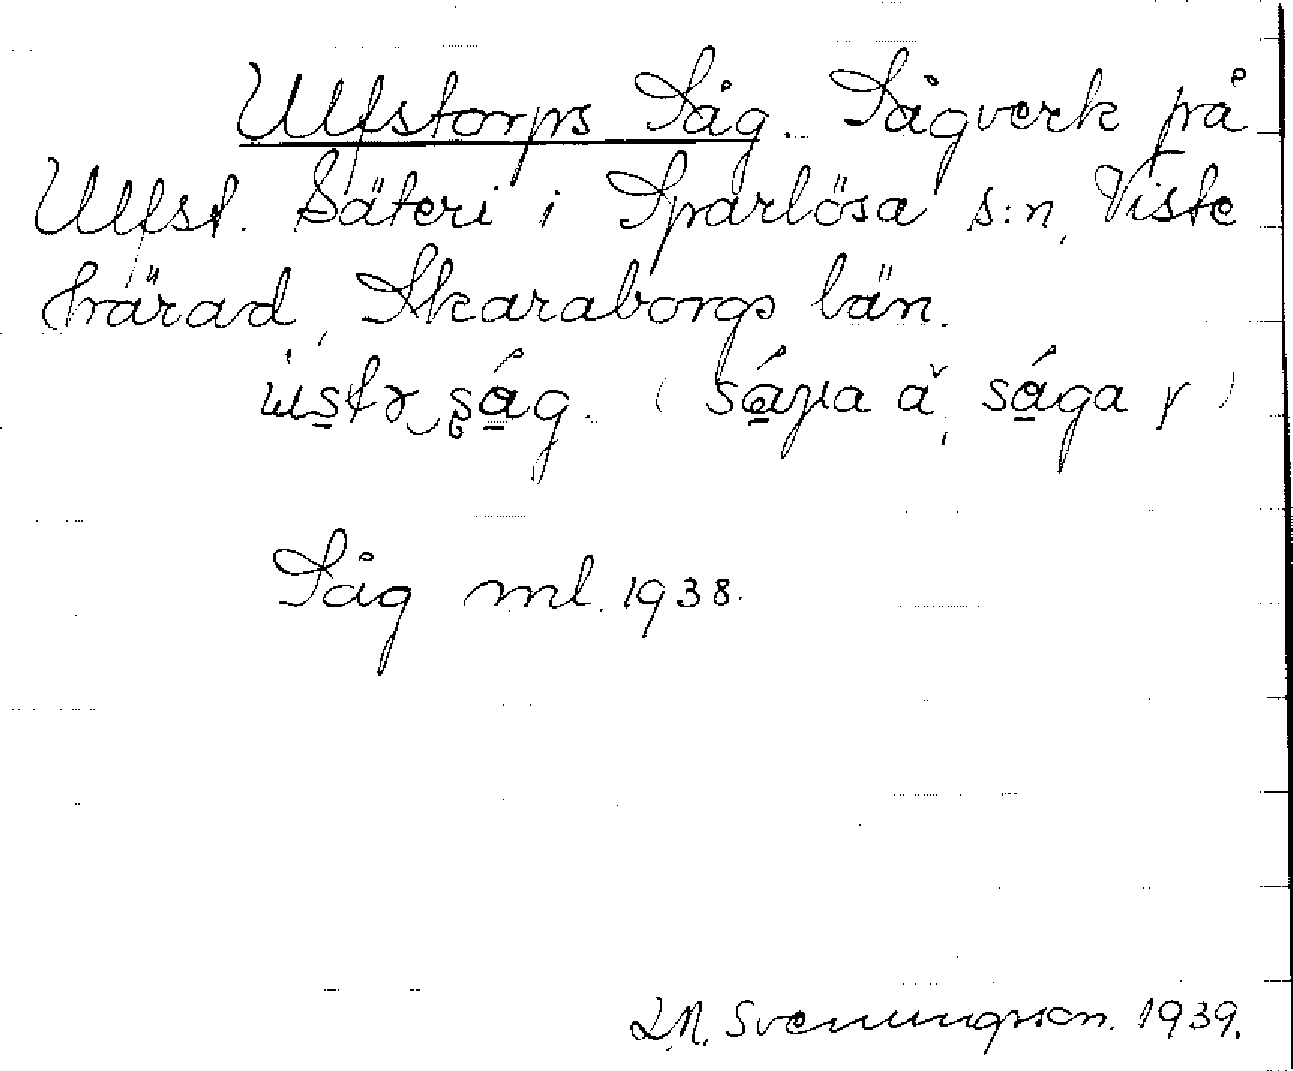 Ulfstorps Såg. Sågverk på
Ulfst. Säteri i Sparlösa s:n, Viste
härad, Skaraborgs län.
såg. ( a, sága
Såg ml. 1938.
L.N. Svenungsson. 1939.